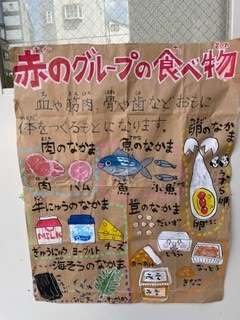 赤のグループの食べ物
血や筋肉、骨や歯などおもに
体をつくるもとになります。
肉のなかま
魚のなかま
卵のなかま
肉
ハム
魚
小魚
牛にゅうのなかま
豆のなかま
だいず
ぎゅうにゅう
ヨーグルト
チーズ
海そうのなかま
みそ
みそ
きなこ